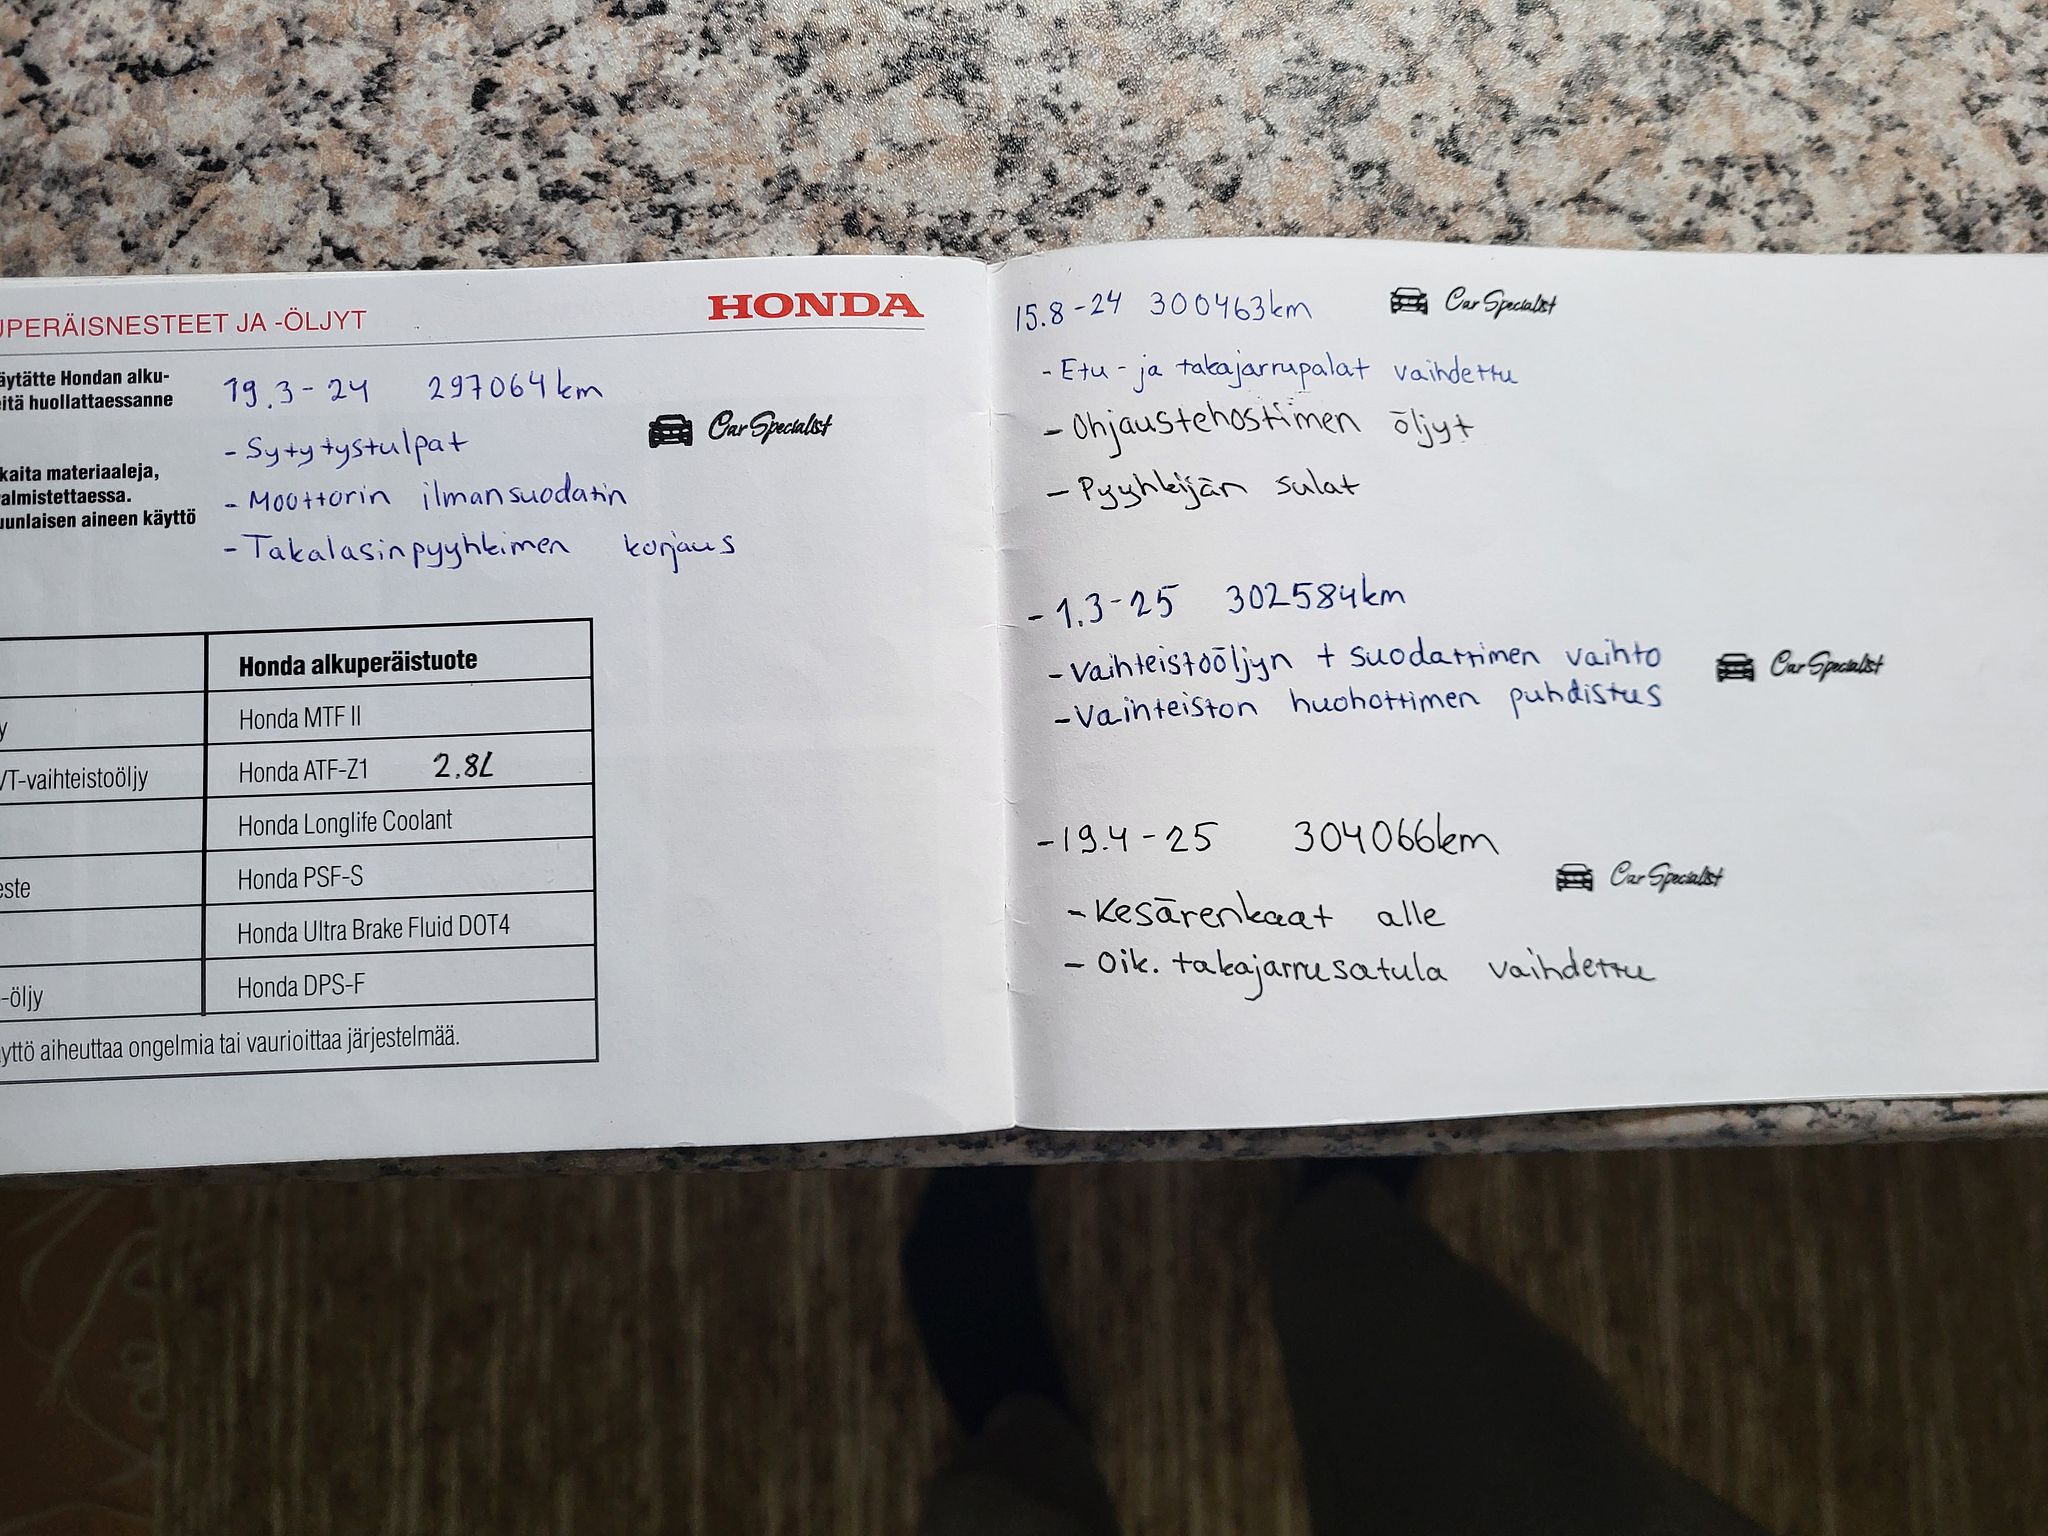 UPERÄISNESTEET JA -ÖLJYT
HONDA
äytätte Hondan alku-
eitä huollattaessanne
19.3-24 297064km
- Sytytystulpat
Car Specialist
kaita materiaaleja,
almistettaessa.
uunlaisen aineen käyttö
- Moottorin ilmansuodatin
- Takalasinpyyhkimen korjaus
Honda alkuperäistuote
y
Honda MTF II
VT-vaihteistoöljy
Honda ATF-Z1 2.8L
Honda Longlife Coolant
este
Honda PSF-S
Honda Ultra Brake Fluid DOT4
-öljy
Honda DPS-F
yttö aiheuttaa ongelmia tai vaurioittaa järjestelmää.
15.8-24 300463km
Car Specialist
- Etu- ja takajarrupalat vaihdettu
- Ohjaustehostimen öljyt
- Pyyhkijän sulat
- 1.3-25 302584km
- Vaihteistoöljyn + suodattimen vaihto
Car Specialist
- Vaihteiston huohottimen puhdistus
- 19.4-25 304066km
Car Specialist
- Kesärenkaat alle
- Oik. takajarrusatula vaihdettu